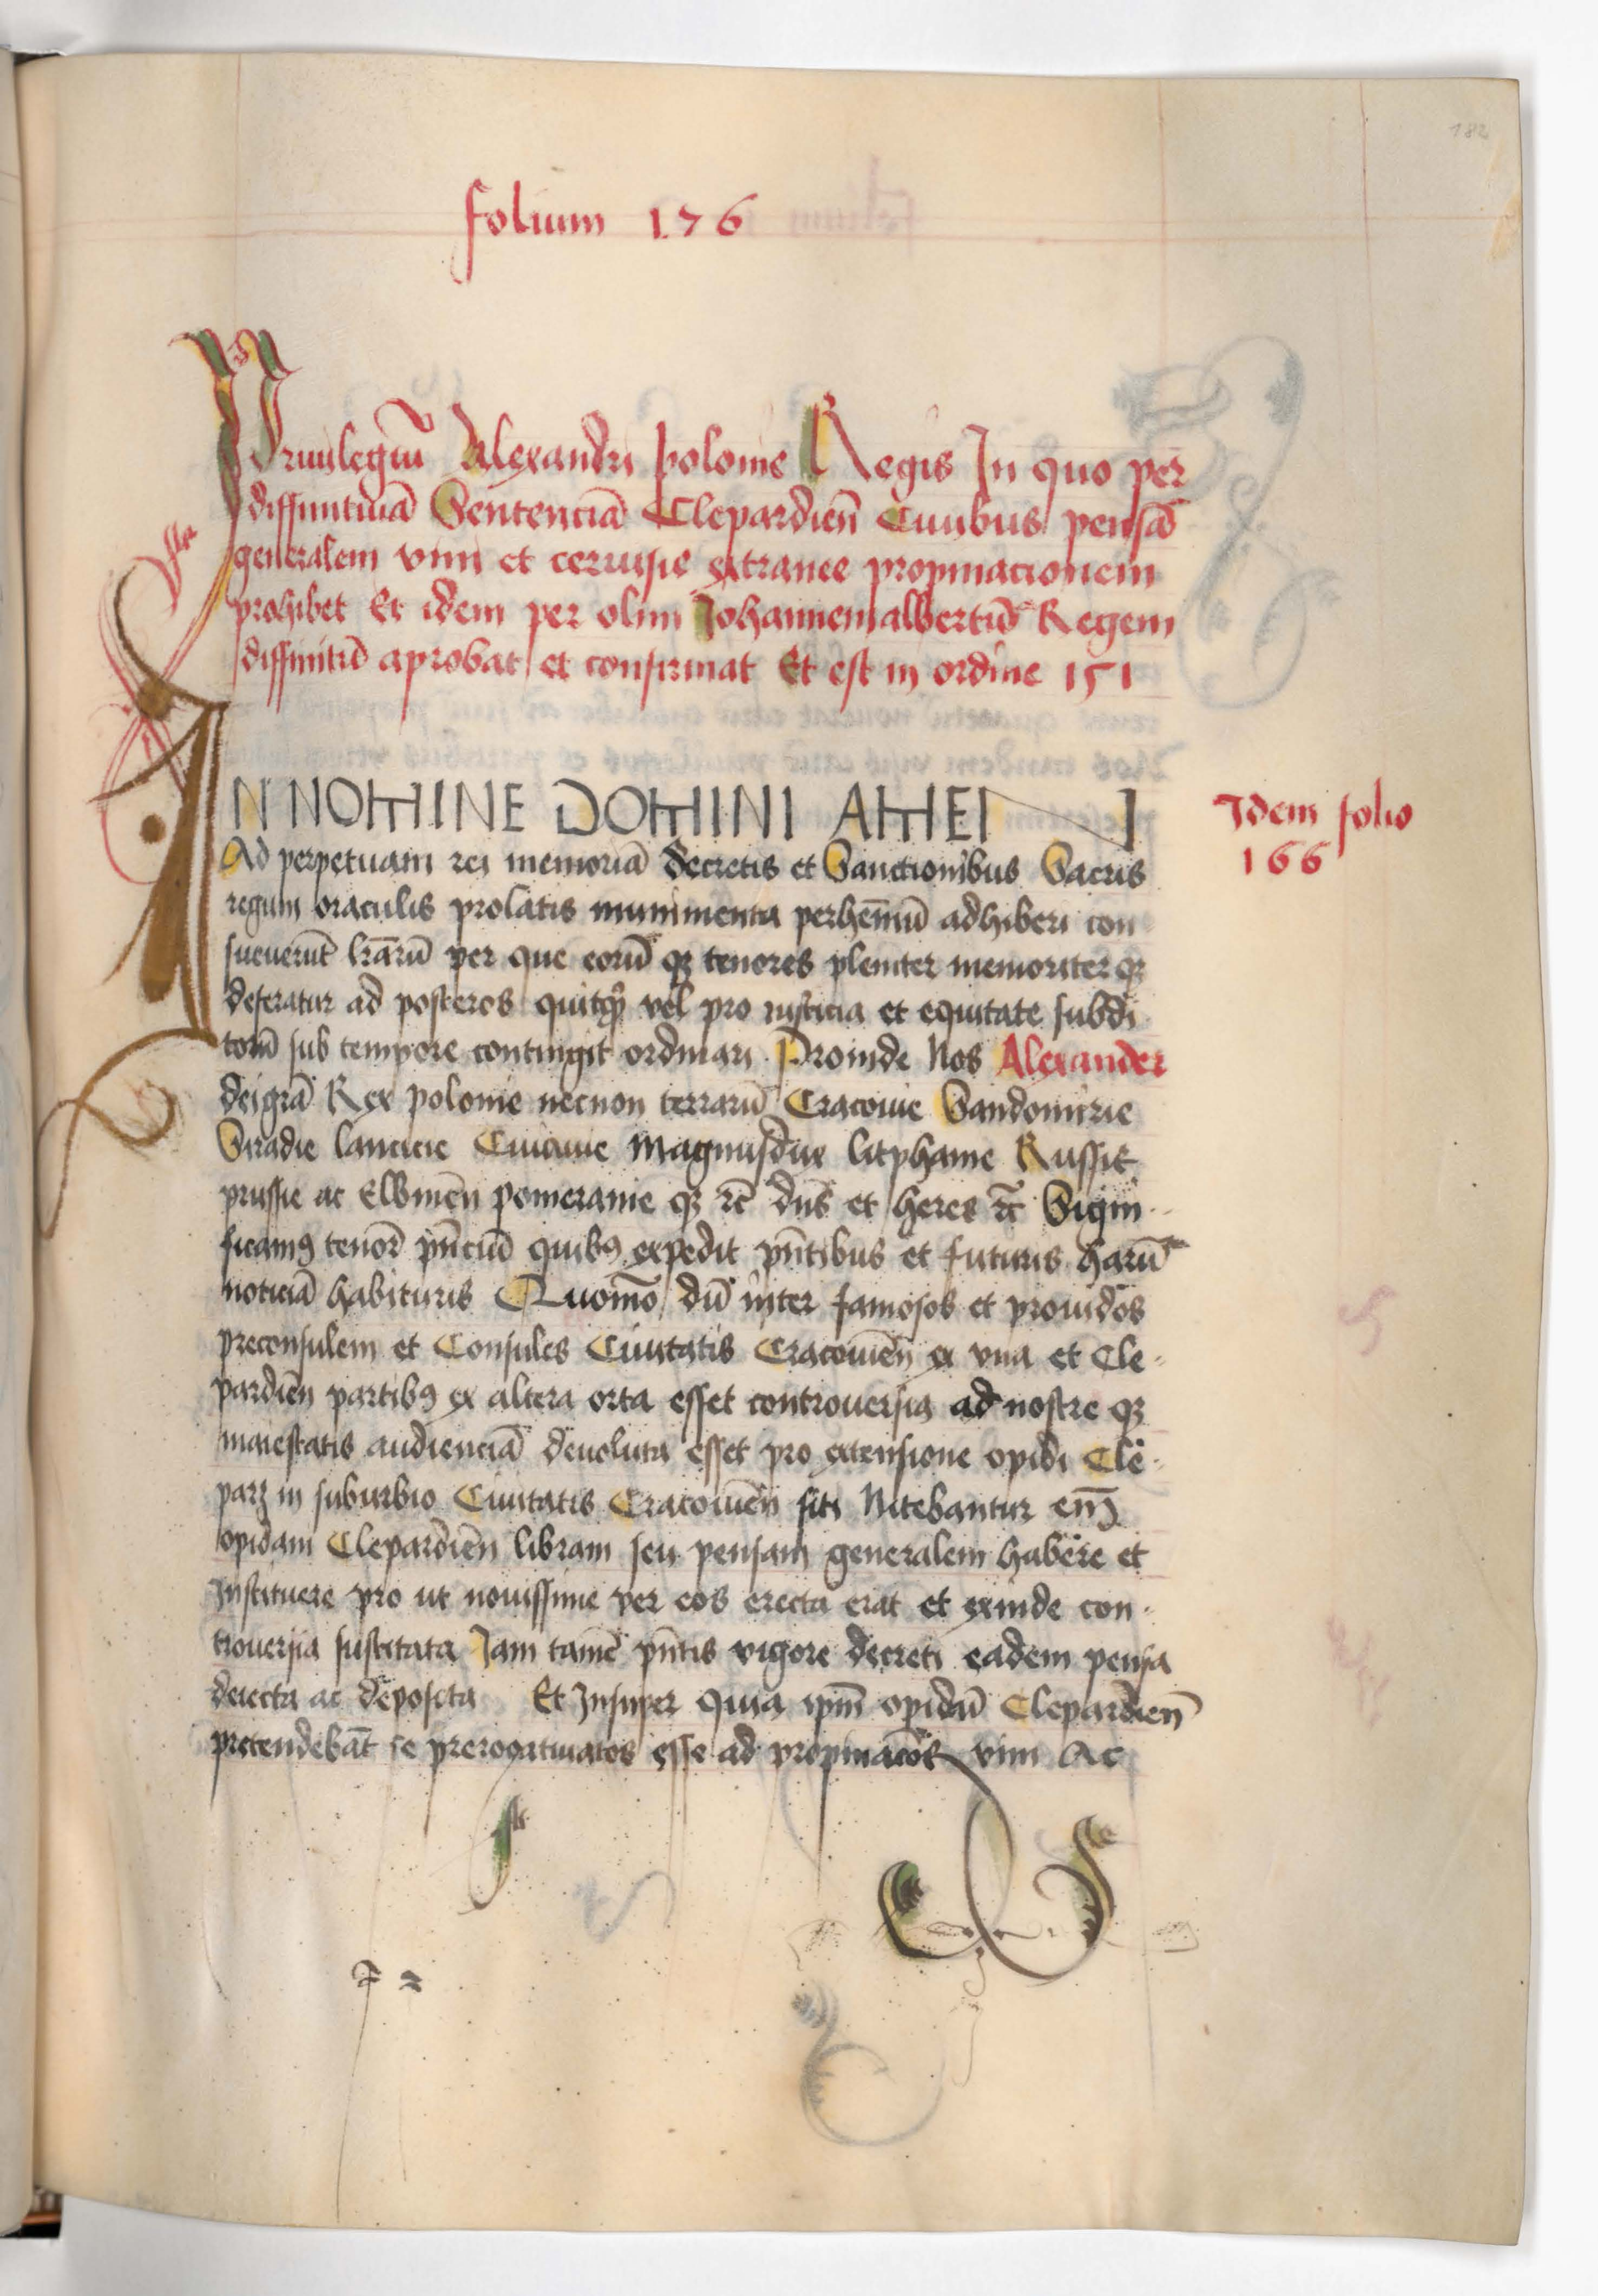 182
folium 176
Priuilegiū Alexandri polonie Regis In quo per
diffinitiuā Sentenciā Clepardieñ Ciuibus pensā
generalem vini et ceruisie extranee propinacionem
prohibet Et idem per olim Johannemalbertū Regem
diffinitū aprobat et confirmat Et est in ordine 151
IN NOMINE DOMINI AMEN
Idem folio
166
Ad perpetuam rei memoriā decretis et Sanctionibus Sacris
regum oraculis prolatis munimenta perhenniū adhiberi con
sueuerūt lr̄arū per que eorū qꝫ tenores pleniter memoriterqꝫ
deferatur ad posteros quitqͥd vel pro iusticia et equitate subdi
torū sub tempore contingit ordinari Proinde Nos Alexander
deigrā Rex polonie necnon terrarū Cracouie Sandomirie
Siradie lancicie Cuiauie Magnusdux litphanie Russie
prussie ac Elbineñ pomeranie qꝫ rc̄ dns̄ et heres rc̄ Signi
ficamꝰ tenor̄ pn̄ciū quibꝰ expedit pn̄tibus et futuris harū
noticiā habituris Quom̄o dū inter famosos et prouidos
preconsulem et Consules Ciuitatis Cracouieñ ex vna et Cle
pardieñ partibꝰ ex altera orta esset controuersia ad nostre qꝫ
maiestatis audienciā deuoluta esset pro extensione opidi Cle
parz in suburbio Ciuitatis Cracouieñ siti Nitebantur em̄
opidani Clepardieñ libram seu pensam generalem habere et
Instituere pro ut nouissime per eos erecta erat et exinde con
trouersia suscitata Jam tamē pn̄tis vigore decreti eadem pensa
deiecta ac deposita Et Insuper quia ipm̄ opidū Clepardieñ
pretendebāt se prerogatiuatos esse ad propinacōēs vini Ac